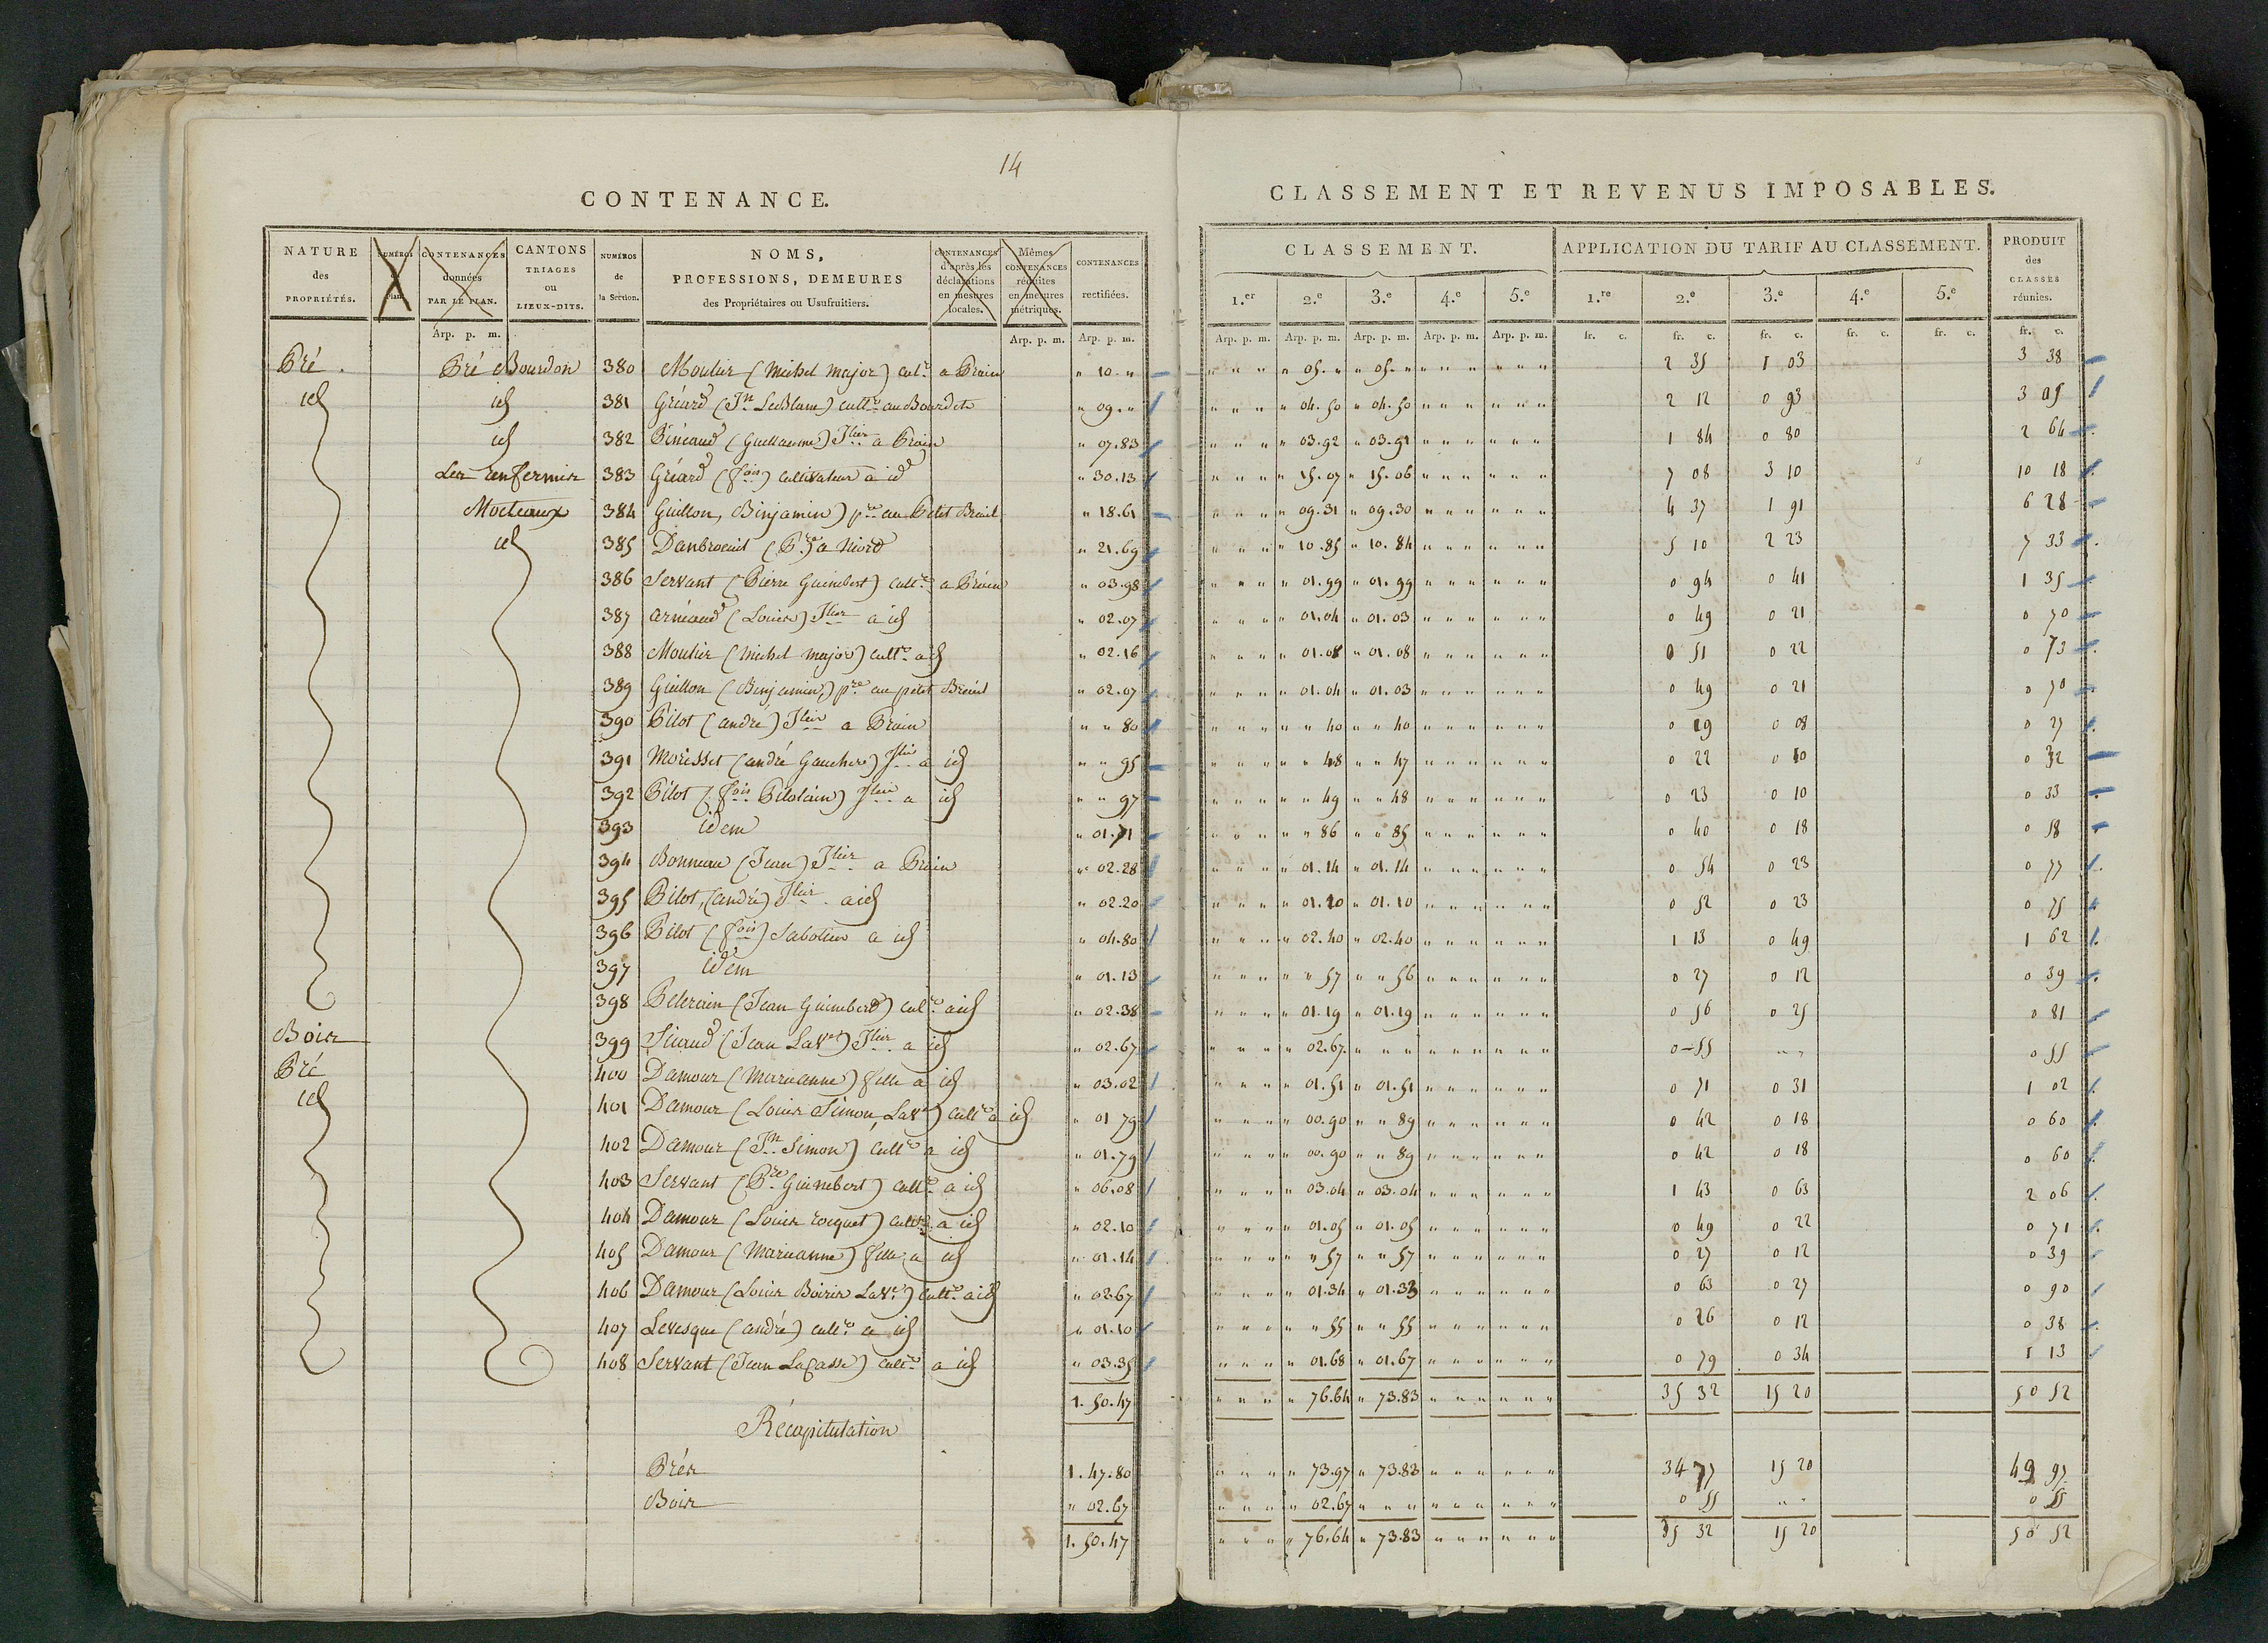 14
CONTENANCE.
NATURE des PROPRIÉTÉS. NUMÉROS du Plan. CONTENANCES données PAR LE PLAN. CANTONS TRIAGES ou LIEUX-DITS. NUMÉROS de la Section. NOMS, PROFESSIONS, DEMEURES des Propriétaires ou Usufruitiers. CONTENANCES d'après les déclarations en mesures locales. Mêmes CONTENANCES réduites en mesures métriques. CONTENANCES rectifiées.
Arp. p. m. Arp. p. m. Arp. p. m.
Pré. Pré Bourdon 380 Moulier (Michel major) cul.r a Prain " 10. "
id id 381 Gréard (Jn LeBlanc) cult.r au Bourdet " 09. "
id 382 Pineaud (Guillaume) Jlier a Prain " 07.83
Les enfermis 383 Gréard (fois) Cultivateur a id " 30.13
Mocteaux 384 Guillon, Binjamin) pre au Petit Breuil " 18.61
id 385 Danbroeuil (Pre) a Niord " 21.69
386 Servant (Pierre Guinebert) cult.r a Prain " 03.98
387 Arnéaud (Louis) Jlier a id " 02.07
388 Moulier (Michel major) cult.r a id " 02.16
389 Guillon (Binjamin) pre au petit Breuil " 02.07
390 Pilot (andré) Jlier a Prain " " 80
391 Morisset (andré Gaucher) Jlier a id " " 95
392 Pilot (fois Pilotain) Jlier a id " " 97
393 idem " 01.71
394 Bonneau (Jean) Jlier a Prain " 02.28
395 Pilot, (andré) Jlier a id " 02.20
396 Pilot (fois) Sabotier a id " 04.80
397 idem " 01.13
398 Pelerain (Jean Guinebert) cul.r a id " 02.38
Bois 399 (Jean Lave) Jlier a id " 02.67
Pré 400 Damour (Marianne) fille a id " 03.02
id 401 Damour (Louis Simon, Lave) Cult.r a id " 01 79
402 Damour (Jn Simon) Cult.r a id " 01.79
403 Servant (Pre Guinebert) cult.r a id " 06.08
404 Damour (Louis rocquet) cult.r a id " 02.10
405 Damour (Marianne) fille a id " 01.14
406 Damour (Louis Boiris Lave) Cult.r a id " 02.67
407 Levesque (andré) cult.r a id " 01.10
408 Servant (Jean Lagasse) Cult.r a id " 03.35
1. 50. 47
Récapitulation
Prés 1. 47. 80
Bois " 02. 67
1. 50. 47
CLASSEMENT ET REVENUS IMPOSABLES.
CLASSEMENT. APPLICATION DU TARIF AU CLASSEMENT. PRODUIT des CLASSES réunies.
1.er 2.e 3.e 4.e 5.e 1.re 2.e 3.e 4.e 5.e
Arp. p. m. Arp. p. m. Arp. p. m. Arp. p. m. Arp. p. m. fr. c. fr. c. fr. c. fr. c. fr. c. fr. c.
" " " " 05. " " 05. " " " " " " " 2 35 1 03 3 38
" " " " 04.50 " 04.50 " " " " " " 2 12 0 93 3 05
" " " " 03.92 " 03.91 " " " " " " 1 84 0 80 2 64
" " " " 15.07 " 15.06 " " " " " " 7 08 3 10 10 18
" " " " 09.31 " 09.30 " " " " " " 4 37 1 91 6 28
" " " " 10.85 " 10.84 " " " " " " 5 10 2 23 7 33
" " " " 01.99 " 01.99 " " " " " " 0 94 0 41 1 35
" " " " 01.04 " 01.03 " " " " " " 0 49 0 21 0 70
" " " " 01.08 " 01.08 " " " " " " 0 51 0 22 0 73
" " " " 01.04 " 01.03 " " " " " " 0 49 0 21 0 70
" " " " " 40 " " 40 " " " " " " 0 19 0 08 0 27
" " " " " 48 " " 47 " " " " " " 0 22 0 10 0 32
" " " " " 49 " " 48 " " " " " " 0 23 0 10 0 33
" " " " " 86 " " 85 " " " " " " 0 40 0 18 0 58
" " " " 01.14 " 01.14 " " " " " " 0 54 0 23 0 77
" " " " 01.10 " 01.10 " " " " " " 0 52 0 23 0 75
" " " " 02.40 " 02.40 " " " " " " 1 13 0 49 1 62
" " " " " 57 " " 56 " " " " " " 0 27 0 12 0 39
" " " " 01.19 " 01.19 " " " " " " 0 56 0 25 0 81
" " " " 02.67. " " " " " " " " " 0 - 55 " " 0 55
" " " " 01.51 " 01.51 " " " " " " 0 71 0 31 1 02
" " " " 00.90 " " 89 " " " " " " 0 42 0 18 0 60
" " " " 00.90 " " 89 " " " " " " 0 42 0 18 0 60
" " " " 03.04 " 03.04 " " " " " " 1 43 0 63 2 06
" " " " 01.05 " 01.05 " " " " " " 0 49 0 22 0 71
" " " " " 57 " " 57 " " " " " " 0 27 0 12 0 39
" " " " 01.34 " 01.33 " " " " " " 0 63 0 27 0 90
" " " " " 55 " " 55 " " " " " " 0 26 0 12 0 38
" " " " 01.68 " 01.67 " " " " " " 0 79 0 34 1 13
" " " " 76.64 " 73.83 " " " " " " 35 32 15 20 50 52
" " " " 73.97 " 73.83 " " " " " " 34 77 15 20 49 97
" " " " 02.67 " " " " " " " " " 0 55 " " 0 55
" " " " 76.64 " 73.83 " " " " " " 35 32 15 20 50 52